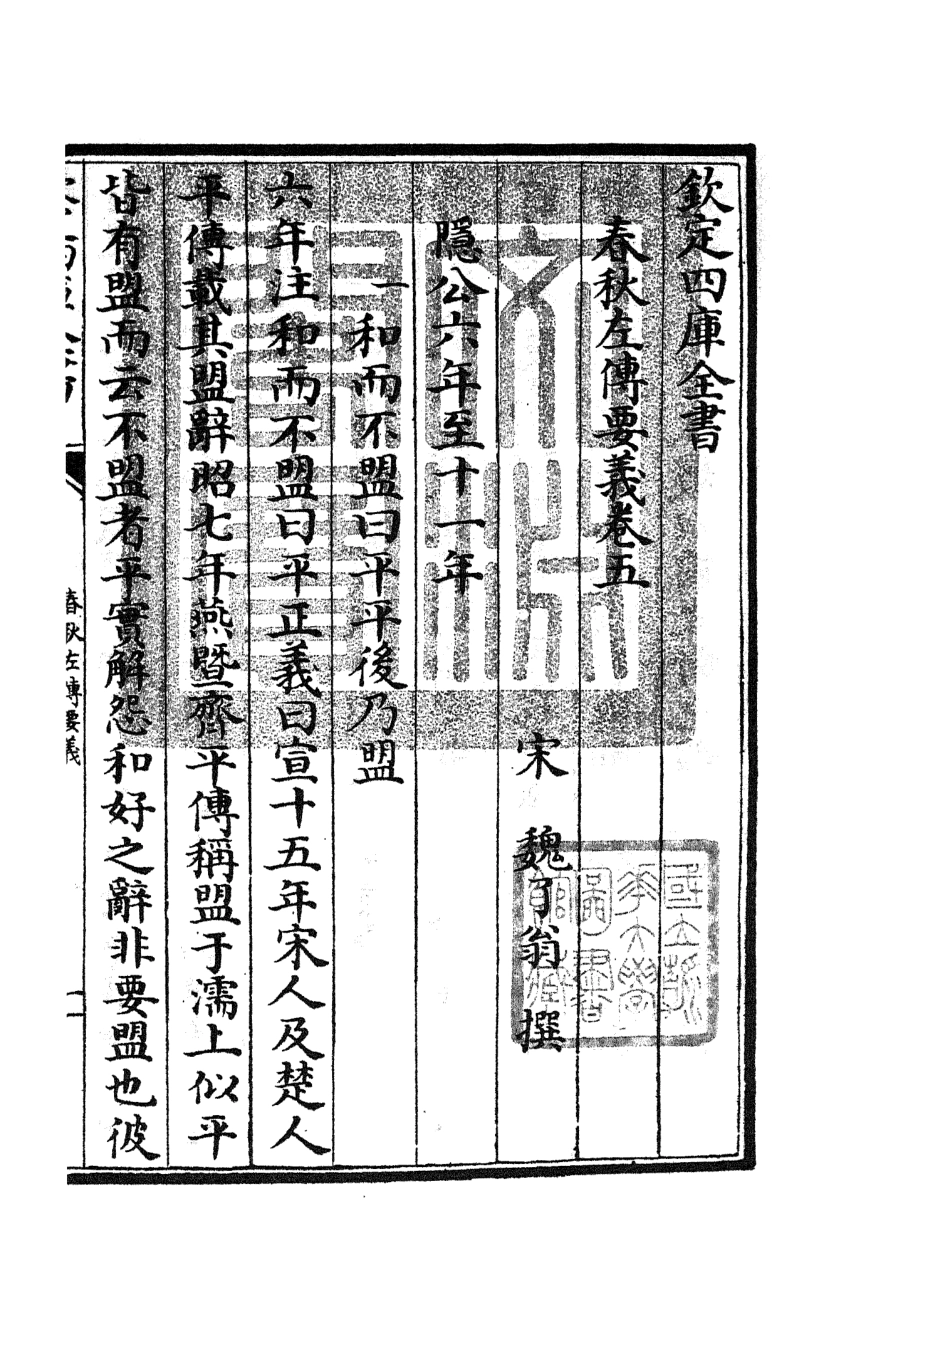 欽定四庫全書
春秋左傳要義卷五
宋　魏了翁　撰
隱公六年至十一年
一和而不盟曰平平後乃盟
六年注和而不盟曰平正義曰宣十五年宋人及楚人
平傳載其盟辭昭七年燕暨齊平傳稱盟于濡上似平
皆有盟而云不盟者平實解怨和好之辭非要盟也彼
春秋左傳要義